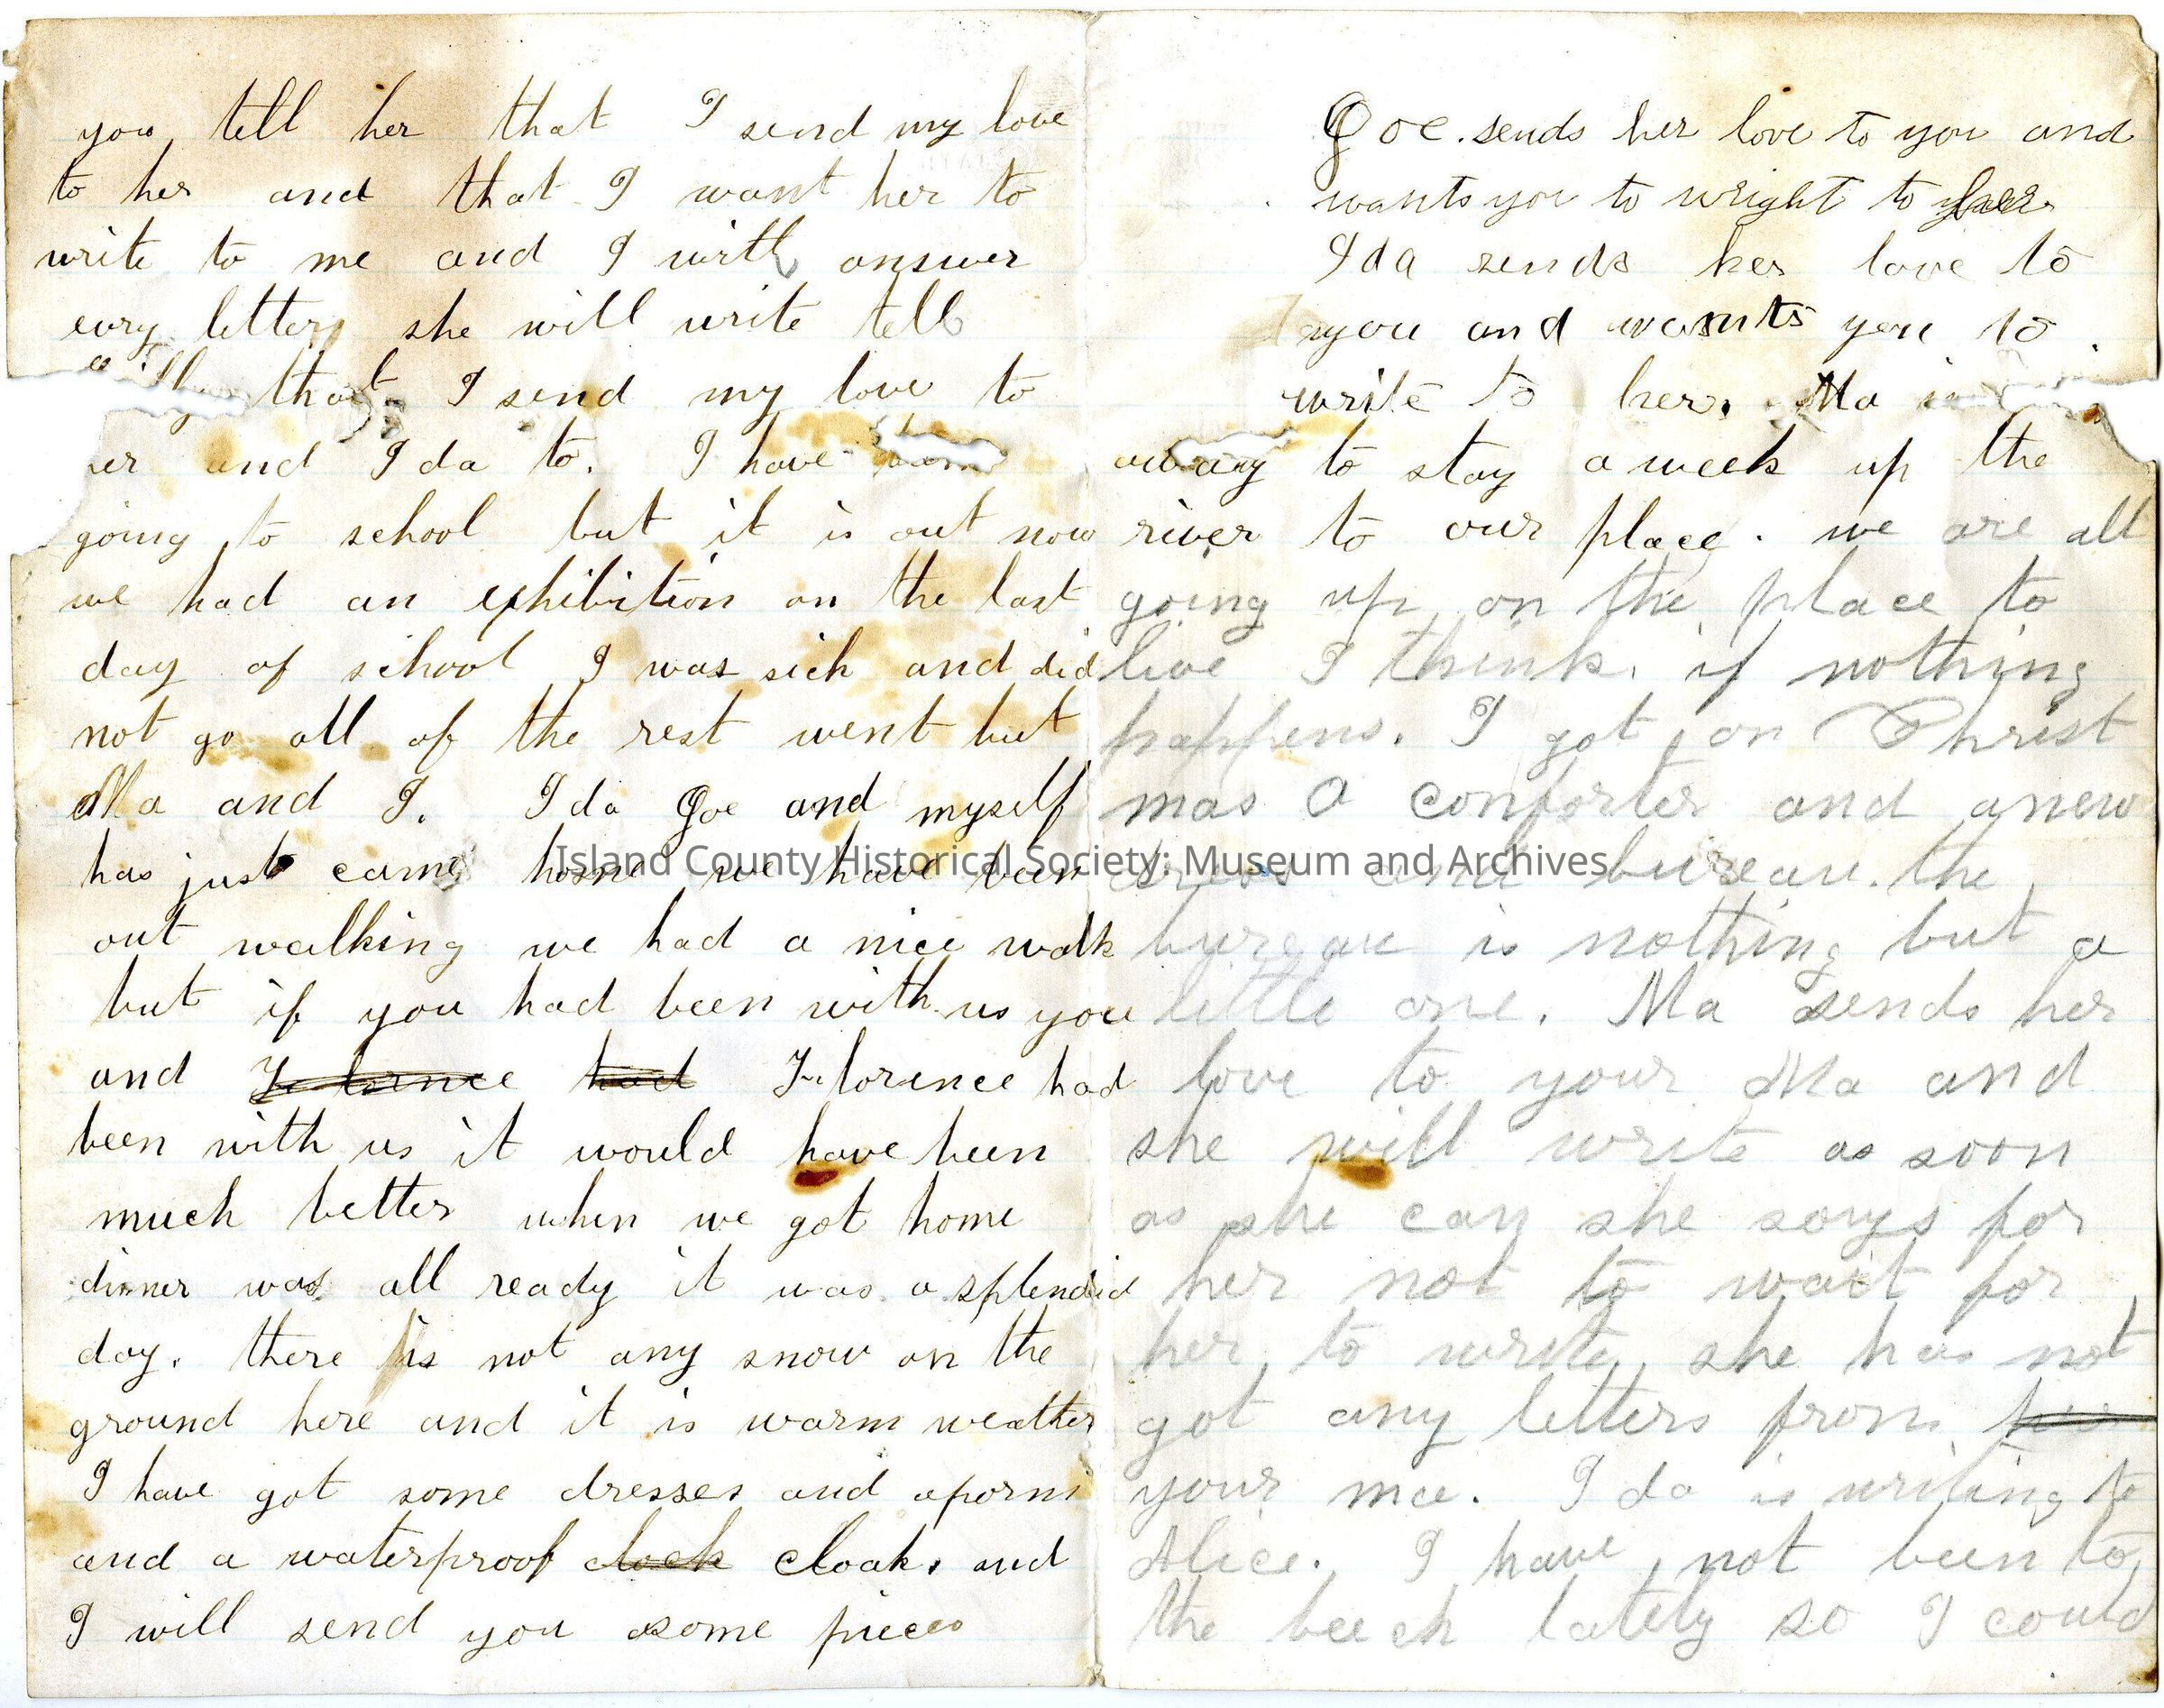 you tell her that I send my love
to her and that I want her to
write to me and I will answer
evry letter she will write tell
that I send my love to
her and Ida to. I have been
going to school but it is out now
we had an exhibition on the last
day of school I was sick and did
not go all of the rest went but
Ma and I. Ida Joe and myself
has just came home we have been
out walking we had a nice walk
but if you had been with us you
and Florence had Florence had
been with us it would have been
much better when we got home
dinner was all ready it was a splendid
day. there is not any snow on the
ground here and it is warm weather
I have got some dresses and aporns
and a waterproof clock cloak. and
I will send you some pieces
Joe. sends her love to you and
wants you to wright to her
Ida sends her love to
you and wants you to
write to her. Ma is
away to stay a week up the
river to our place. we are all
going up on the place to
live I think. if nothing
happens. I got on Christ
mas a comforter and a new
dress and bureau. the
bureau is nothing but a
little one. Ma sends her
love to your Ma and
she will write as soon
as she can she says for
her not to wait for
her to write, she has not
got any letters from her
your ma. Ida is writing to
Alice. I have not been to
the beech lately so I could
Island County Historical Society: Museum and Archives